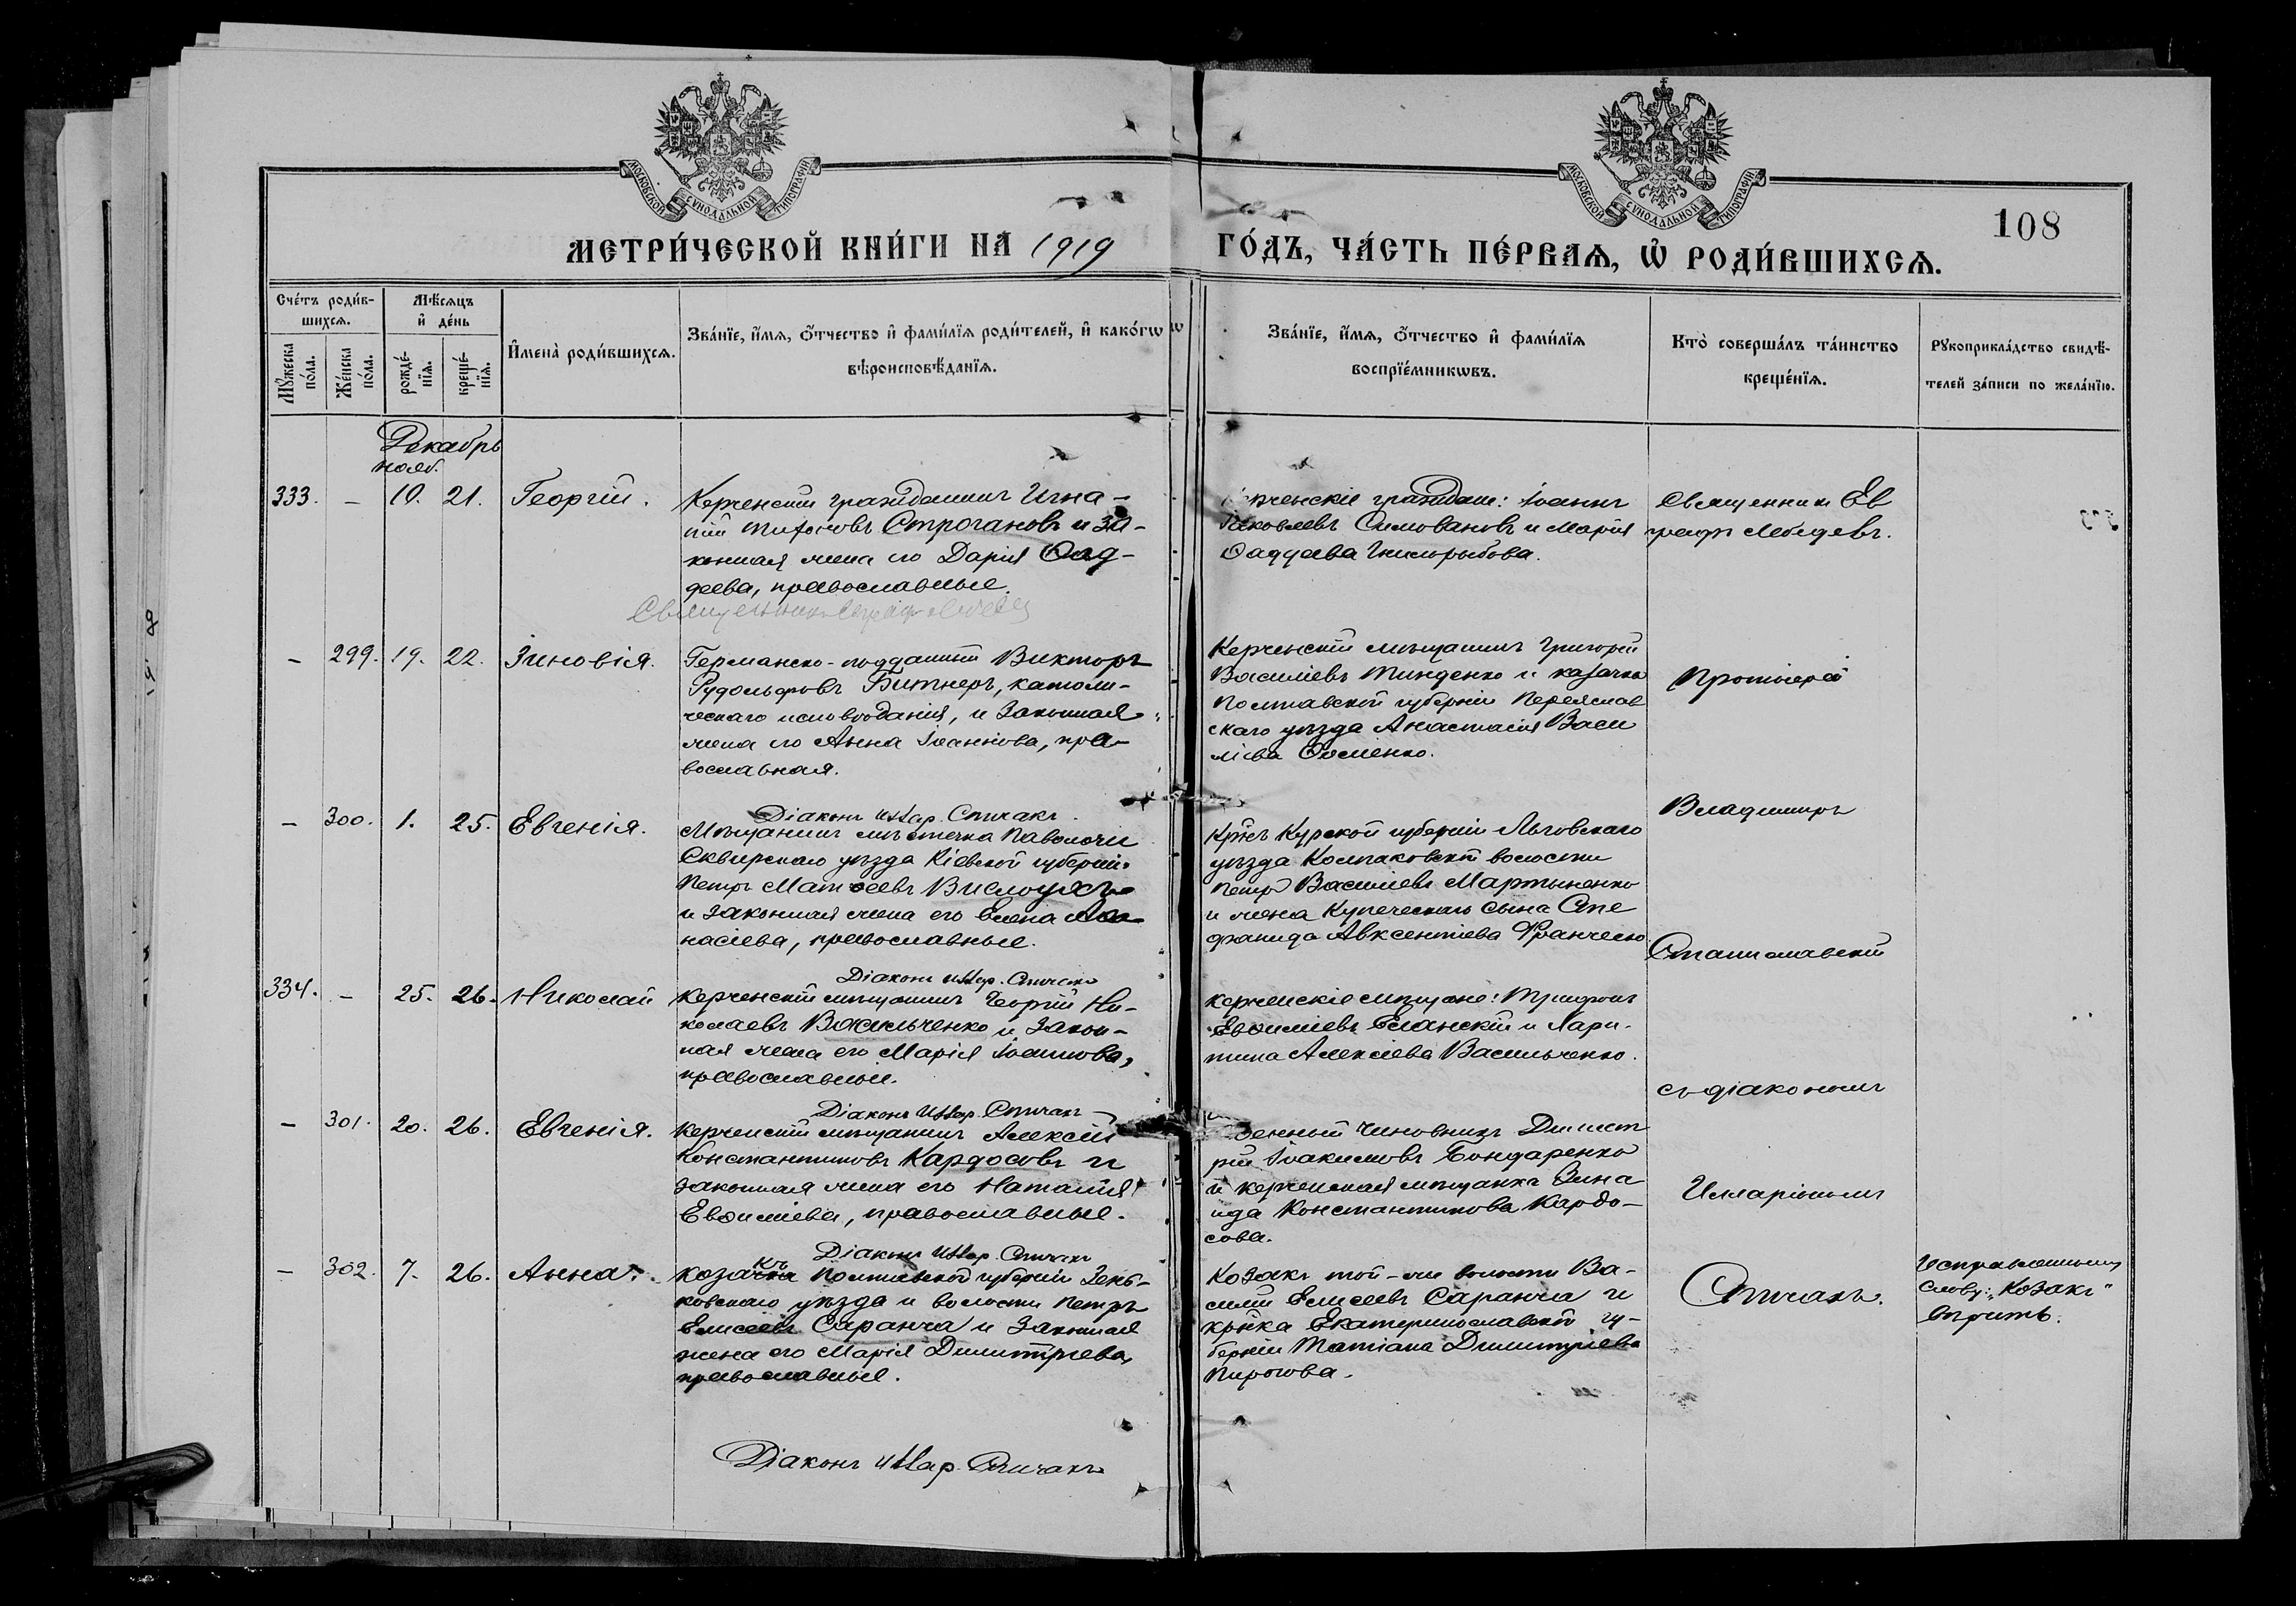 МОСКОВСКОЙ СѴНОДАЛЬНОЙ ТИПОГРАФІИ
МОСКОВСКОЙ СѴНОДАЛЬНОЙ ТИПОГРАФІИ
108
МЕТРИ́ЧЕСКОЙ КНИ́ГИ НА 1919
ГО́ДЪ, ЧА́СТЬ ПЕ́РВАѦ, Ѡ҆ РОДИ́ВШИХСѦ.
Сче́тъ роди́в-
шихсѧ.
Мꙋ́жеска по́ла.
Же́нска по́ла.
Мѣ́сѧцъ
и҆ де́нь
рожде́-
нїѧ.
креще́-
нїѧ.
И҆мена̀ роди́вшихсѧ.
Зва́нїе, и҆́мѧ, ѻ҆́тчество и҆ фами́лїѧ роди́телей, и҆ како́гѡ
вѣроисповѣ́данїѧ.
Зва́нїе, и҆́мѧ, ѻ҆́тчество и҆ фами́лїѧ
воспрїе́мникѡвъ.
Кто̀ соверша́лъ та́инство
креще́нїѧ.
Рꙋкоприкла́дство свидѣ́-
телей за́писи по жела́нїю.
Декабрь
нояб.
333. – 10. 21. Георгій.
Керченскій гражданинъ Игна-
тій Тихоновъ Строгановъ и за-
конная жена его Дарія Ѳад-
деева, православные.
Священникъ Евграфъ Лебедевъ
Керченскіе граждане: Іоаннъ
Яковлевъ Силовановъ и Марія
Ѳаддеева
Священникъ Ев
графъ Лебедевъ.
– 299. 19. 22. Зиновія.
Германско-подданный Викторъ
Рудольфовъ Битнеръ, католи-
ческаго исповѣданія, и законная
жена его Анна Іоаннова, пра-
вославная.
Керченскій мѣщанинъ Григорій
Василіевъ Тинденко и казачка
Полтавской губерніи Переяслав
скаго уѣзда Анастасія Васи
ліева
Протоіерей
Діаконъ Иллар. Спичакъ.
– 300. 1. 25. Евгенія.
Мѣщанинъ мѣстечка Паволочи
Сквирскаго уѣзда Кіевской губерніи
Петръ Матѳеевъ Вислоухъ
и законная жена его Елена Аѳа
насіева, православные.
Кр-нъ Курской губерніи Льговскаго
уѣзда Колпаковской волости
Петръ Василіевъ Мартыненко
и жена купеческаго сына Сте
фанида Авксентіева Франческо
Владиміръ
Станиславскій
Діаконъ Иллар. Спичакъ
334. – 25. 26. Николай
Керченскій мѣщанинъ Георгій Ни-
колаевъ Васильченко и закон-
ная жена его Марія Іоаннова,
православные.
Керченскіе мѣщане: Трифонъ
Евѳиміевъ Еланскій и Хари-
тина Алексіева Васильченко.
съ діакономъ
Діаконъ Иллар. Спичакъ
– 301. 20. 26. Евгенія.
Керченскій мѣщанинъ Алексій
Константиновъ Кардосовъ и
законная жена его Наталія
Евѳиміева, православные.
чиновникъ Димит
рій Іоакимовъ Бондаренко
и керченская мѣщанка Зина
ида Константинова Кардо-
сова.
Илларіономъ
Діаконъ Иллар. Спичакъ
– 302. 7. 26. Анна.
Козакъ Полтавской губерніи Зень-
ковскаго уѣзда и волости Петръ
Елисеевъ Саранча и законная
жена его Марія Димитріева,
православные.
Козакъ той-же волости Ва-
силій Елисеевъ Саранча и
кр-нка Екатеринославской гу-
берніи Татіана Димитріева
Пирогова.
Спичакъ.
Исправленному
слову: „Козакъ"
вѣрить.
Діаконъ Иллар. Спичакъ